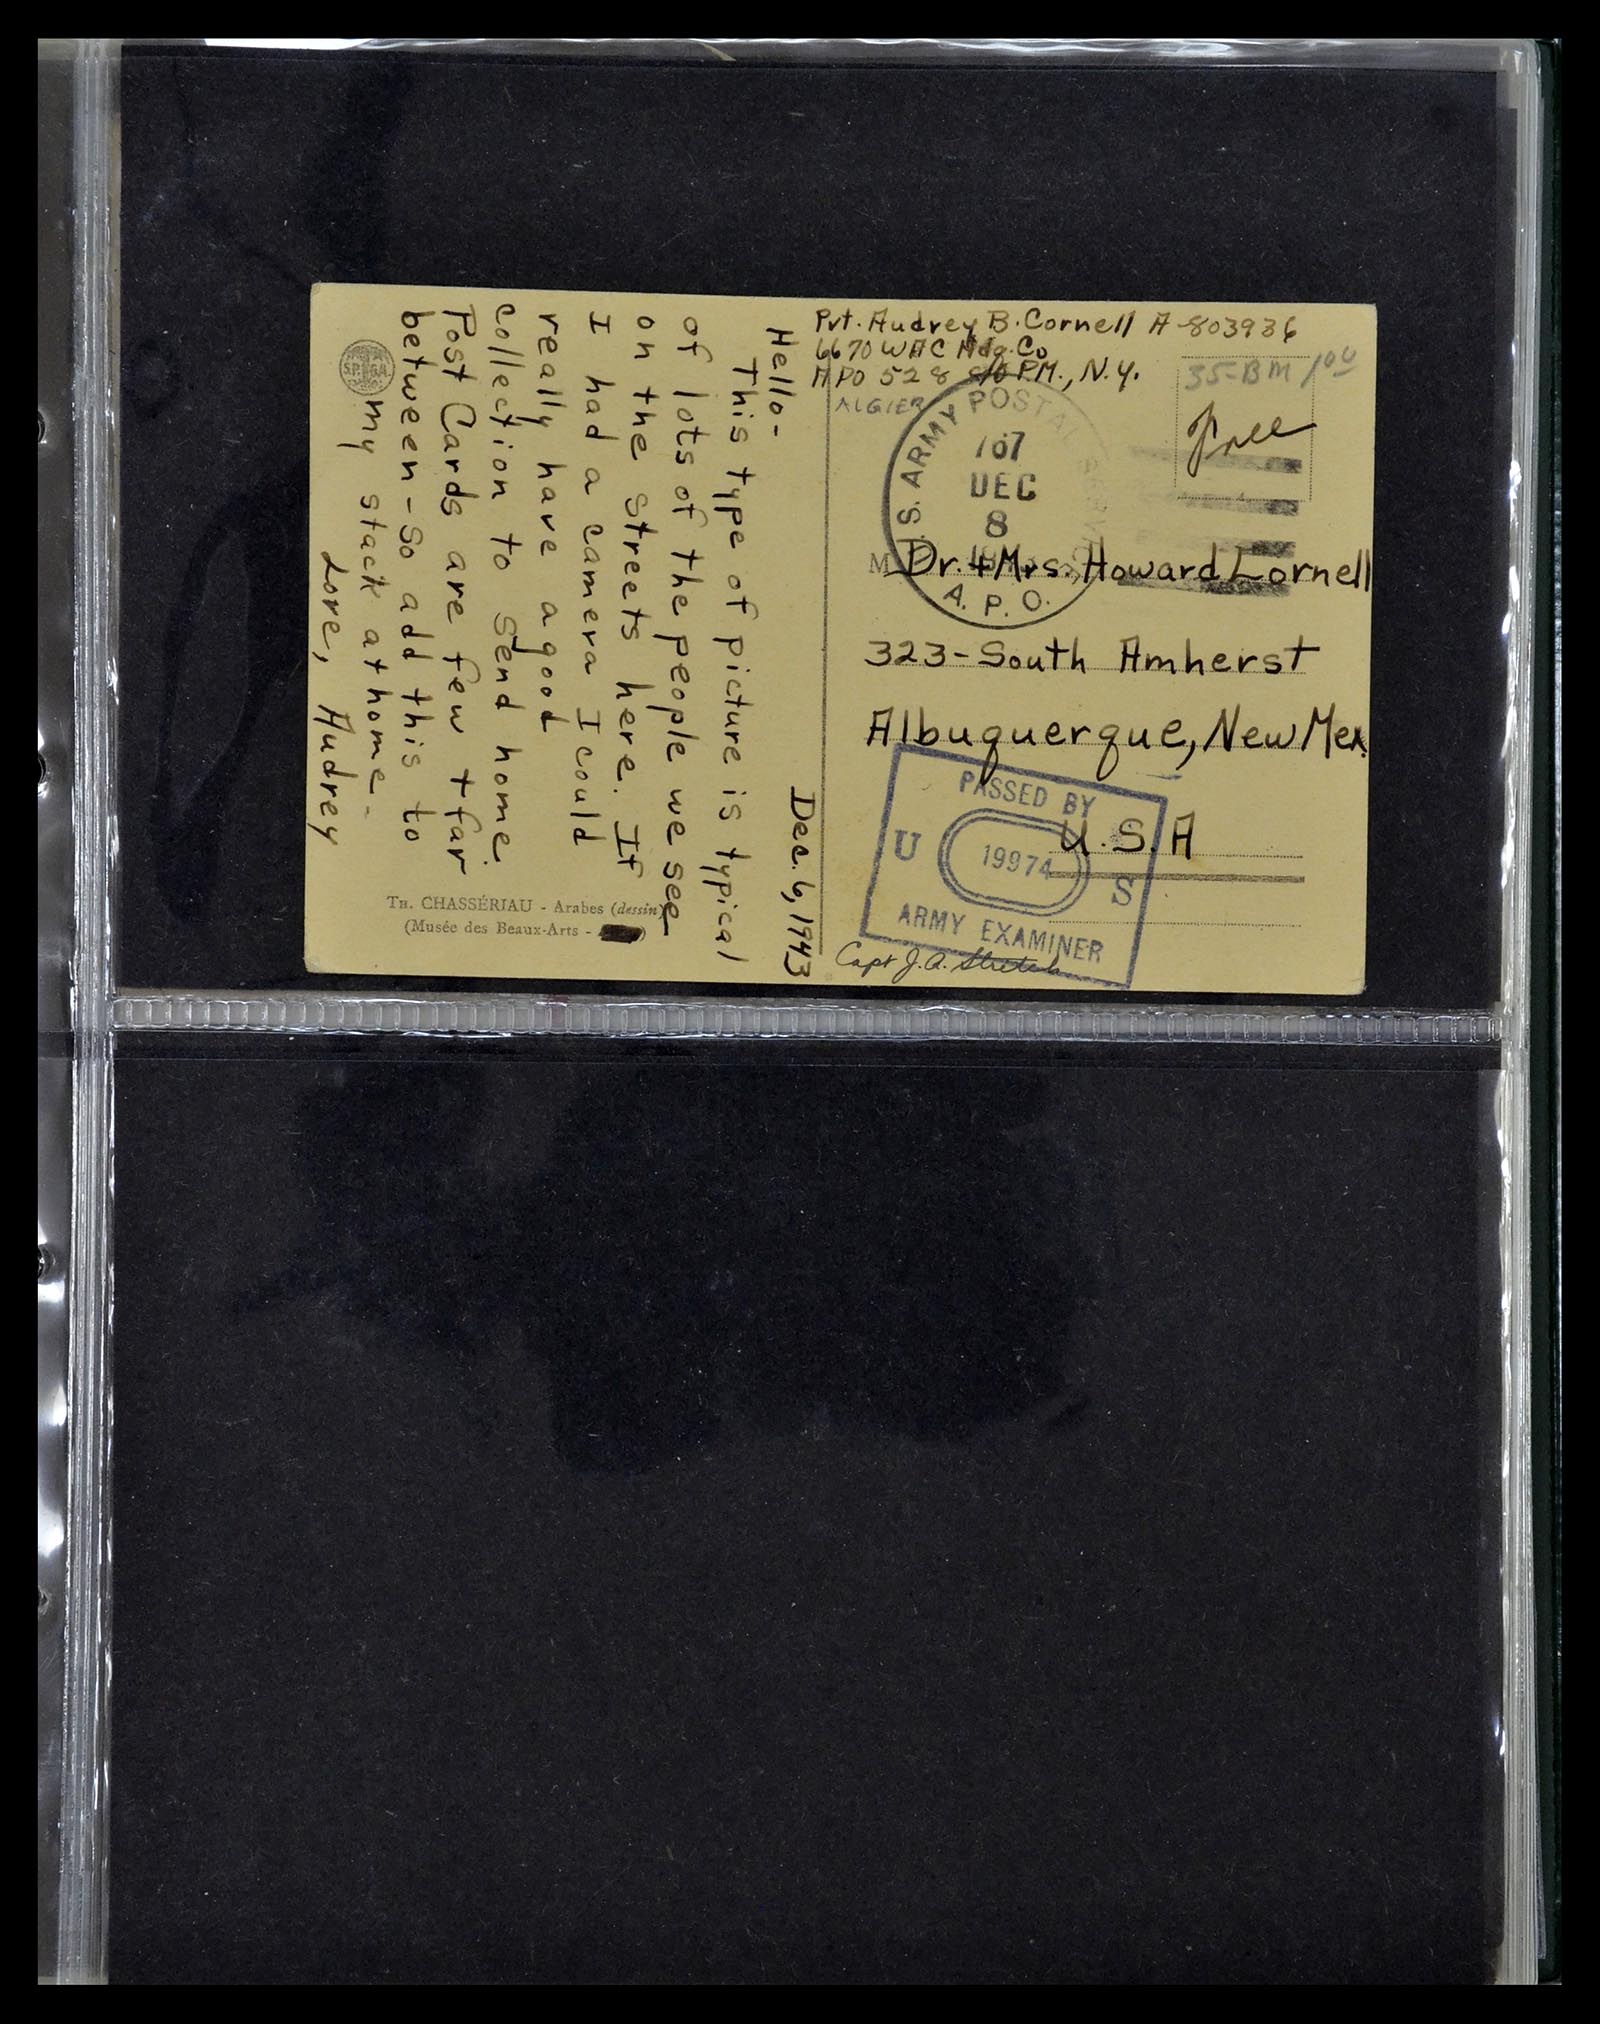 Pvt. Audrey B. Cornell A-803936
6670 WAC Hdq. Co
APO 528 c/o P.M., N.Y.
ALGIER
35-BM 1.00
Free
U.S. ARMY POSTAL
167
DEC
8
A. P. O.
M Dr. + Mrs. Howard Cornell
323-South Amherst
Albuquerque, New Mex.
U.S.A
PASSED BY
U 19974 S
ARMY EXAMINER
Capt J.A.
Dec. 6, 1943
Hello-
This type of picture is typical
of lots of the people we see
on the streets here. If
I had a camera I could
really have a good
collection to send home.
Post Cards are few + far
between - So add this to
my stack at home-
Love, Audrey
S.P.G.A.
TH. CHASSÉRIAU - Arabes (dessin)
(Musée des Beaux-Arts - )